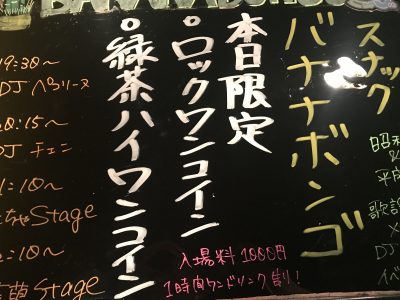 スナック
バナナボンゴ
本日限定
ロックワンコイン
緑茶ハイワンコイン
入場料1000円
1時間ワンドリンク制り!
19:30〜
DJ ペリーヌ
20:15〜
DJ チェニ
1:10〜
ちゃStage
2:10〜
Stage
昭和
平成
歌謡
×
DJ
イベ